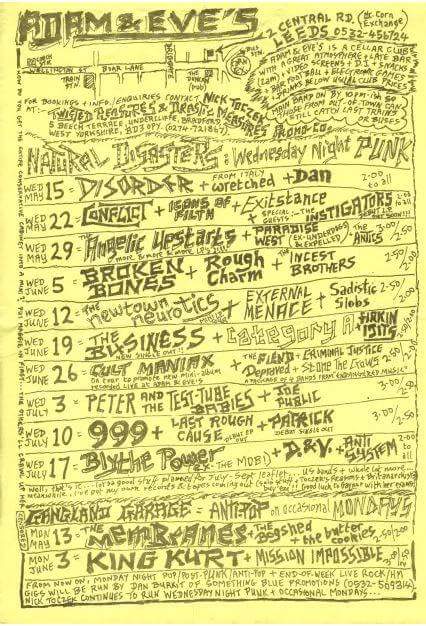 ADAM & EVE'S
2 CENTRAL RD. (Nr. Corn Exchange)
LEEDS 0532-456724
WELLINGTON ST BOAR LANE
TRAIN STN.
THE DUNCAN (pub)
ADAM & EVE'S IS A CELLAR CLUB
WITH A GREAT ATMOSPHERE + LATE BAR
(2am) + VIDEO SCREENS + D.J. + SNACKS
BAR FOOTBALL + ELECTRONIC GAMES
DRINKS BELOW USUAL CLUB PRICES
MAIN BAND ON BY 10pm-ish SO
THOSE FROM OUT-OF-TOWN CAN
STILL CATCH LAST TRAINS
OR BUSES
FOR BOOKINGS + INFO./ENQUIRIES CONTACT NICK TOCZEK
AT: TWISTED REASONS & DRASTIC MEASURES PROMO-CO.
5 BEECH TERRACE, UNDERCLIFFE, BRADFORD,
WEST YORKSHIRE, BD3 0PY. (0274-721867).
NATURAL DISASTERS: Wednesday Night PUNK
WED MAY 15 = DISORDER + FROM ITALY wretched + Dan 2·00 to all
WED MAY 22 = CONFLICT + ICONS OF FILTH + Exitstance + SPECIAL GUESTS: THE INSTIGATORS
WED MAY 29 = The Angelic Upstarts + PARADISE WEST (EX-UNDERDOGS & EXPELLED) + THE ANTICS 3·00/2·50
WED JUNE 5 = BROKEN BONES + Rough Charm + THE INCEST BROTHERS 2·50/2·00
WED JUNE 12 = The newtown neurotics + EXTERNAL MENACE + Sadistic Slobs 2·50/2·00
WED JUNE 19 = THE BUSINESS + Category A + FIRKIN 2·50/2·00
NEW SINGLE OUT!!
WED JUNE 26 = CULT MANIAX + THE FIEND + CRIMINAL JUSTICE 2·50/2·00
Depraved + STONE THE CROWS
ON TOUR TO PROMOTE NEW MINI-ALBUM
RECORDED LIVE AT ADAM & EVE'S
A PACKAGE OF 4 BANDS FROM "ENDANGERED MUSIC"
WED JULY 3 = PETER AND THE TEST-TUBE BABIES + JOE PUBLIC 3·00/2·50
WED JULY 10 = 999 + LAST ROUGH CAUSE + PATRICK 3·00/2·50
DEBUT SINGLE OUT
WED JULY 17 = Blythe Power (EX-THE MOB!) + D.&V. + ANTI SYSTEM 2·00 to all
Well, that's it... lotsa good stuff planned for July-Sept leaflet... US bands + whole lot more...
GANGLAND GARAGE = ANTI-POP on occasional MONDAYS
MON MAY 13 = THE MEMBRANES + THE Bogshed + the butter cookies 2·50/2·00
MON JUNE 3 = KING KURT + MISSION IMPOSSIBLE 3·00/2·50
FROM NOW ON, MONDAY NIGHT POP/POST-PUNK/ANTI-POP + END-OF-WEEK LIVE ROCK/HM
GIGS WILL BE RUN BY DAN BURKIT OF SOMETHING BLUE PROMOTIONS (0532-509314)
NICK TOCZEK CONTINUES TO RUN WEDNESDAY NIGHT PUNK + OCCASIONAL MONDAYS...